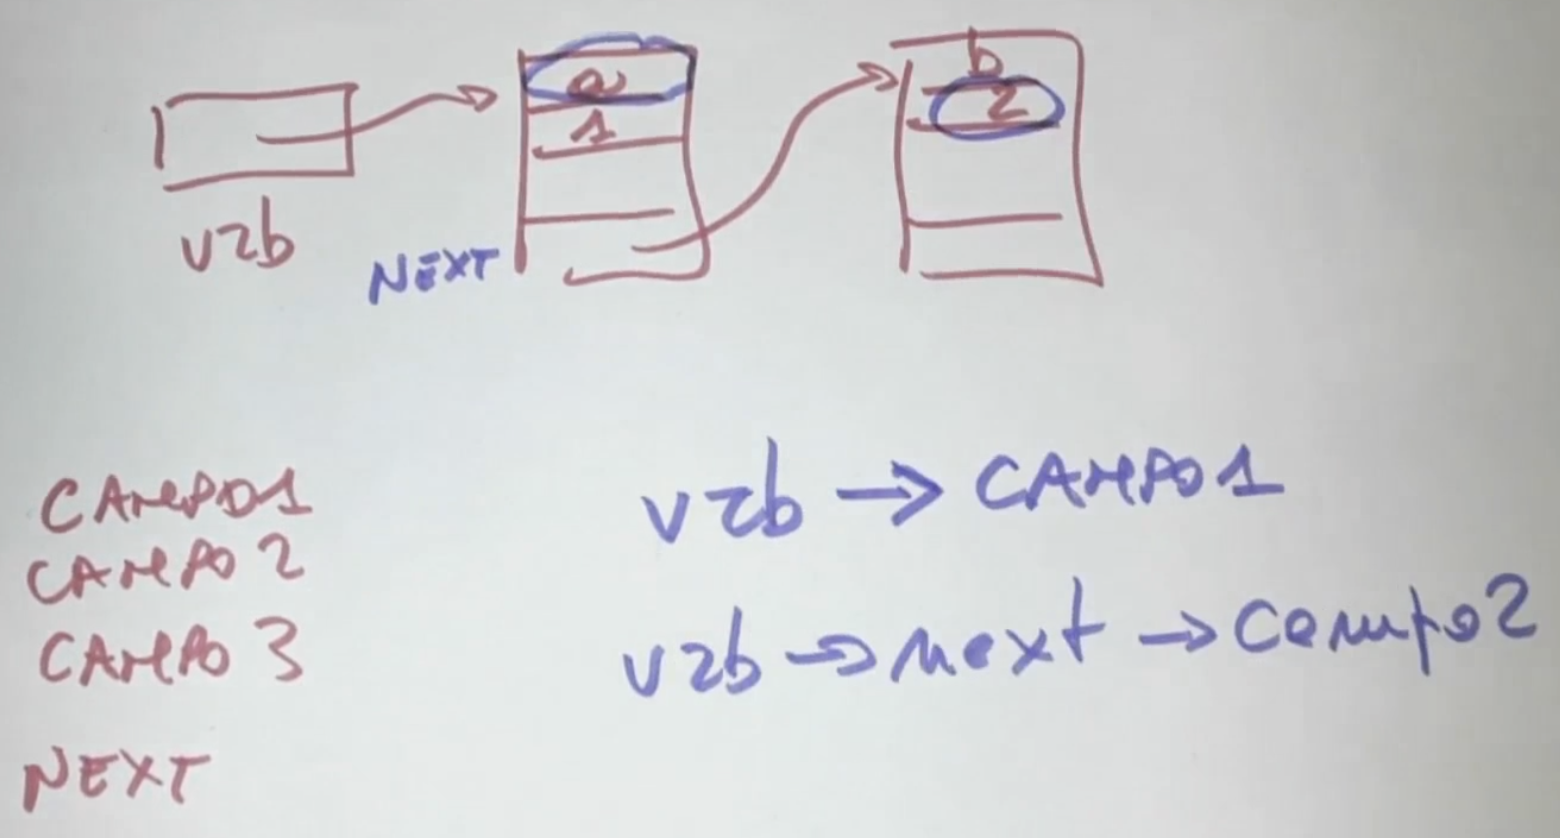 a
b
1
2
vzb
NEXT
CAMPO1
CAMPO 2
CAMPO 3
NEXT
vzb → CAMPO1
vzb → next → campo2